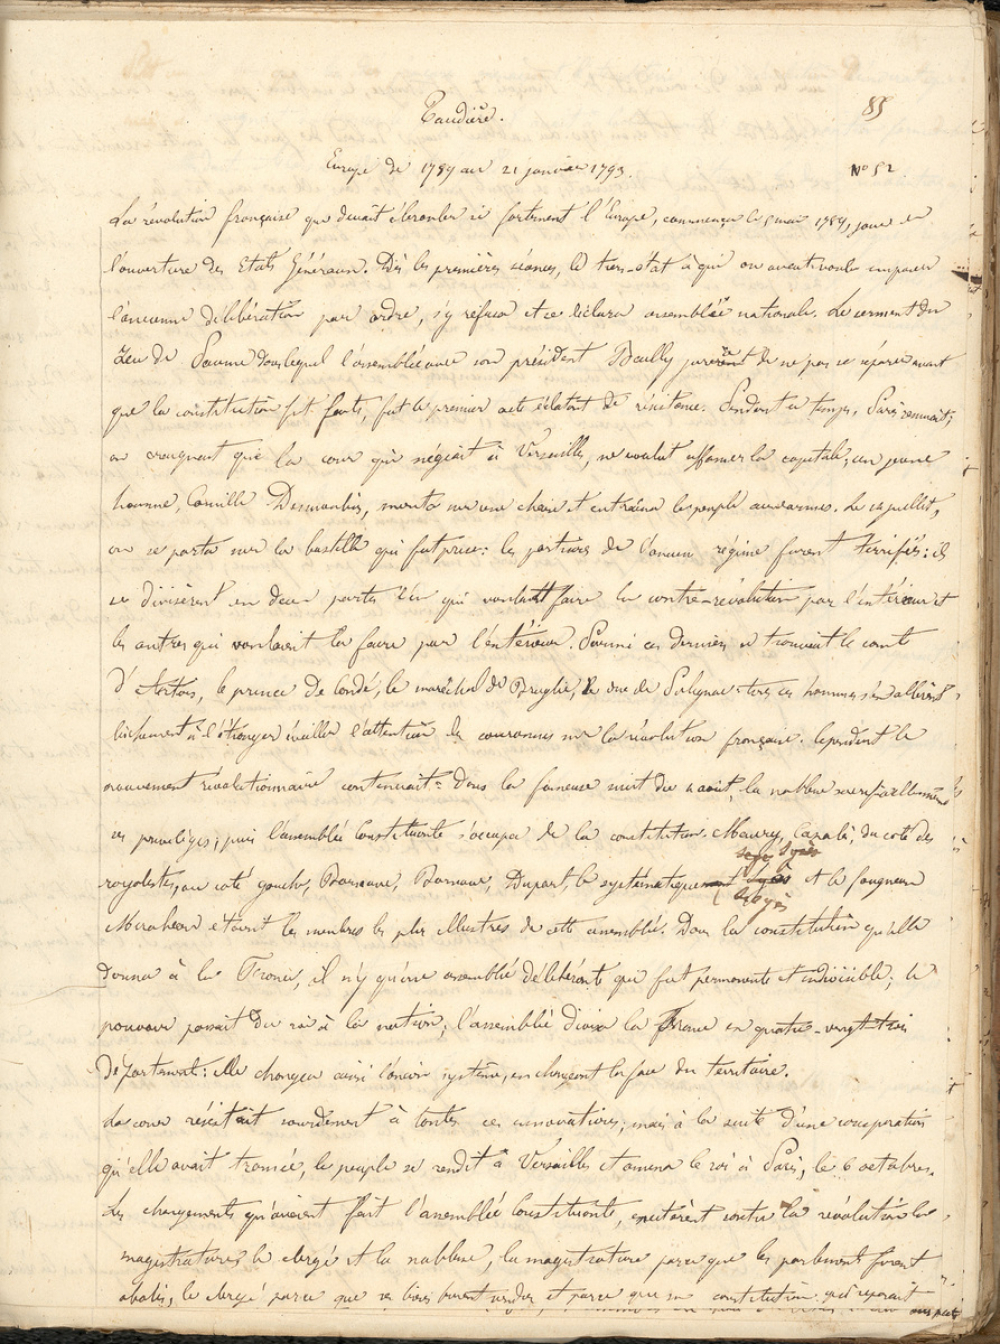 Taudière.
85
Europe de 1789 au 21 janvier 1793.
N° 52.
La révolution française que devait ébranler si fortement l'Europe, commença le 5 mai 1789, jour de
l'ouverture des Etats Généraux. Dès les premières séances, le tiers-état à qui on avait voulu imposer
l'ancienne délibération par ordre, s'y refusa et se déclara assemblée nationale. Le serment du
Jeu de Paume dans lequel l'assemblée avec son président Bailly jurèrent de ne pas se séparer avant
que la constitution fut faite, fut le premier acte éclatant de résistance. Pendant ce temps, Paris remuait;
on craignait que la cour qui siégeait à Versailles, ne voulut affamer la capitale; un jeune
homme, Camille Desmoulins, monta sur une chaise et entraîna le peuple aux armes. Le 14 juillet,
on se porta sur la bastille qui fut prise: les partisans de l'ancien régime furent terrifiés: ils
se divisèrent en deux partis l'un qui voulait faire la contre-révolution par l'extérieur et
les autres qui voulaient la faire par l'intérieur. Parmi ces derniers se trouvait le comte
d'Artois, le prince de Condé, le maréchal de Broglie, le duc de Polignac tous ces hommes s'en allèrent
lâchement à l'étranger éveiller l'attention des couronnes sur la révolution française. Cependant le
mouvement révolutionnaire continuait: Dans la fameuse nuit du 4 août, la noblesse
ces privilèges; puis l'assemblée Constituante s'occupa de la constitution. Maury, Cazalès, du coté des
royalistes, au coté gauche, Barnave, Duport, le systématique Sieyès et le fougueux
Mirabeau étaient les membres les plus illustres de cette assemblée. Dans la constitution qu'elle
donna à la France, il n'y qu'une assemblée délibérante qui fut permanente et indivisible; le
pouvoir passait du roi à la nation; l'assemblée divisa la France en quatre-vingt trois
départements: elle changea ainsi l'ancien système, en changeant la face du territoire.
La cour résistait sourdement à toutes ces innovations; mais à la suite d'une conspiration
qu'elle avait tramée, le peuple se rendit à Versailles et amena le roi à Paris, le 6 octobre.
Les changements qu'avaient fait l'assemblée Constituante, excitèrent contre la révolution la
magistrature, le clergé et la noblesse, la magistrature parce que les parlements furent
abolis, le clergé parce que ses biens furent vendus et parce que sa constitution